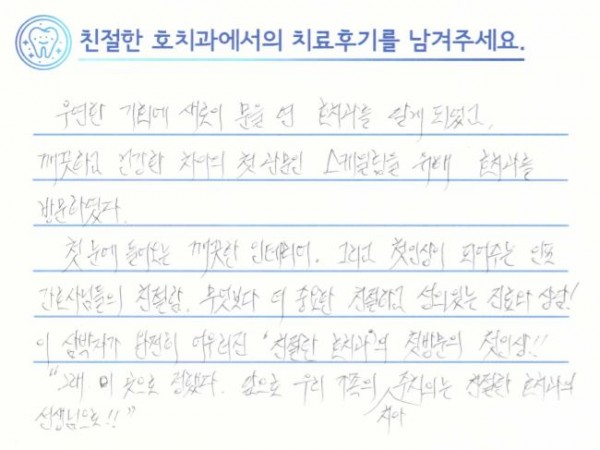 친절한 호치과에서의 치료후기를 남겨주세요.
우연한 기회에 새로이 문을 연 호치과를 알게 되었고,
깨끗하고 건강한 치아의 첫 관문인 스케일링을 위해 호치과를
방문하였다.
첫 눈에 들어오는 깨끗한 인테리어. 그리고 첫인상이 되어주는 인포
간호사님들의 친절함. 무엇보다 더 중요한 친절하고 성의있는 진료와 상담!
이 삼박자가 완전히 어우러진 "친절한 호치과"의 첫방문의 첫인상!!
"그래 이 곳으로 정했다. 앞으로 우리 가족의 치아 주치의는 친절한 호치과의
선생님으로!!"